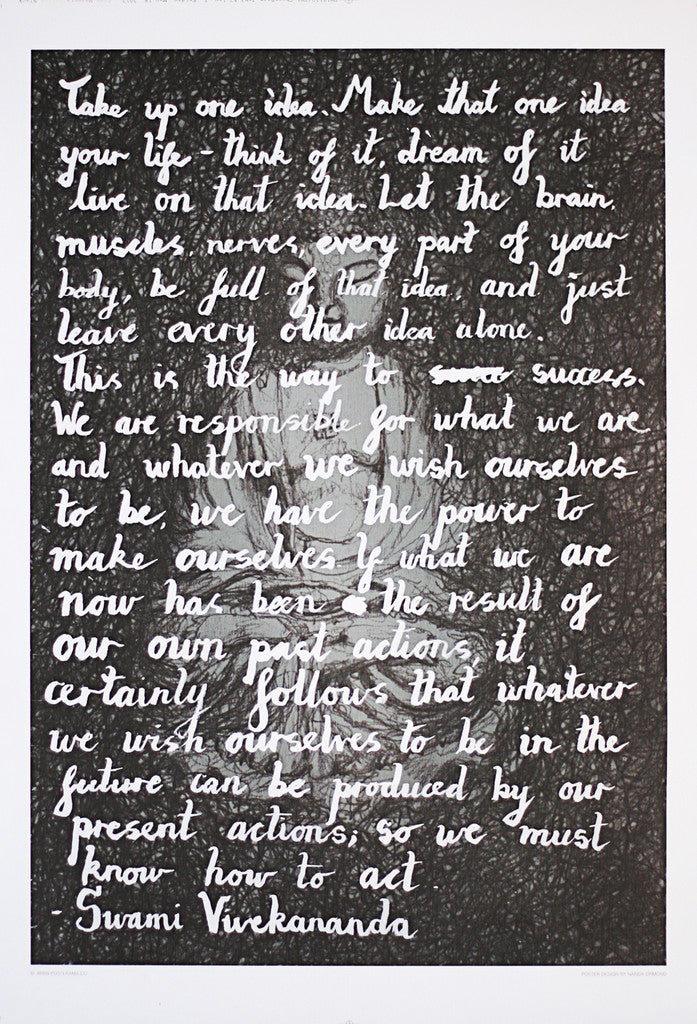 Take up one idea. Make that one idea
your life - think of it, dream of it
live on that idea. Let the brain,
muscles, nerves, every part of your
body, be full of that idea, and just
leave every other idea alone.
This is the way to success.
We are responsible for what we are
and whatever we wish ourselves
to be, we have the power to
make ourselves. If what we are
now has been the result of
our own past actions, it
certainly follows that whatever
we wish ourselves to be in the
future can be produced by our
present actions; so we must
know how to act.
- Swami Vivekananda
POSTER DESIGN BY NANDA ORMOND